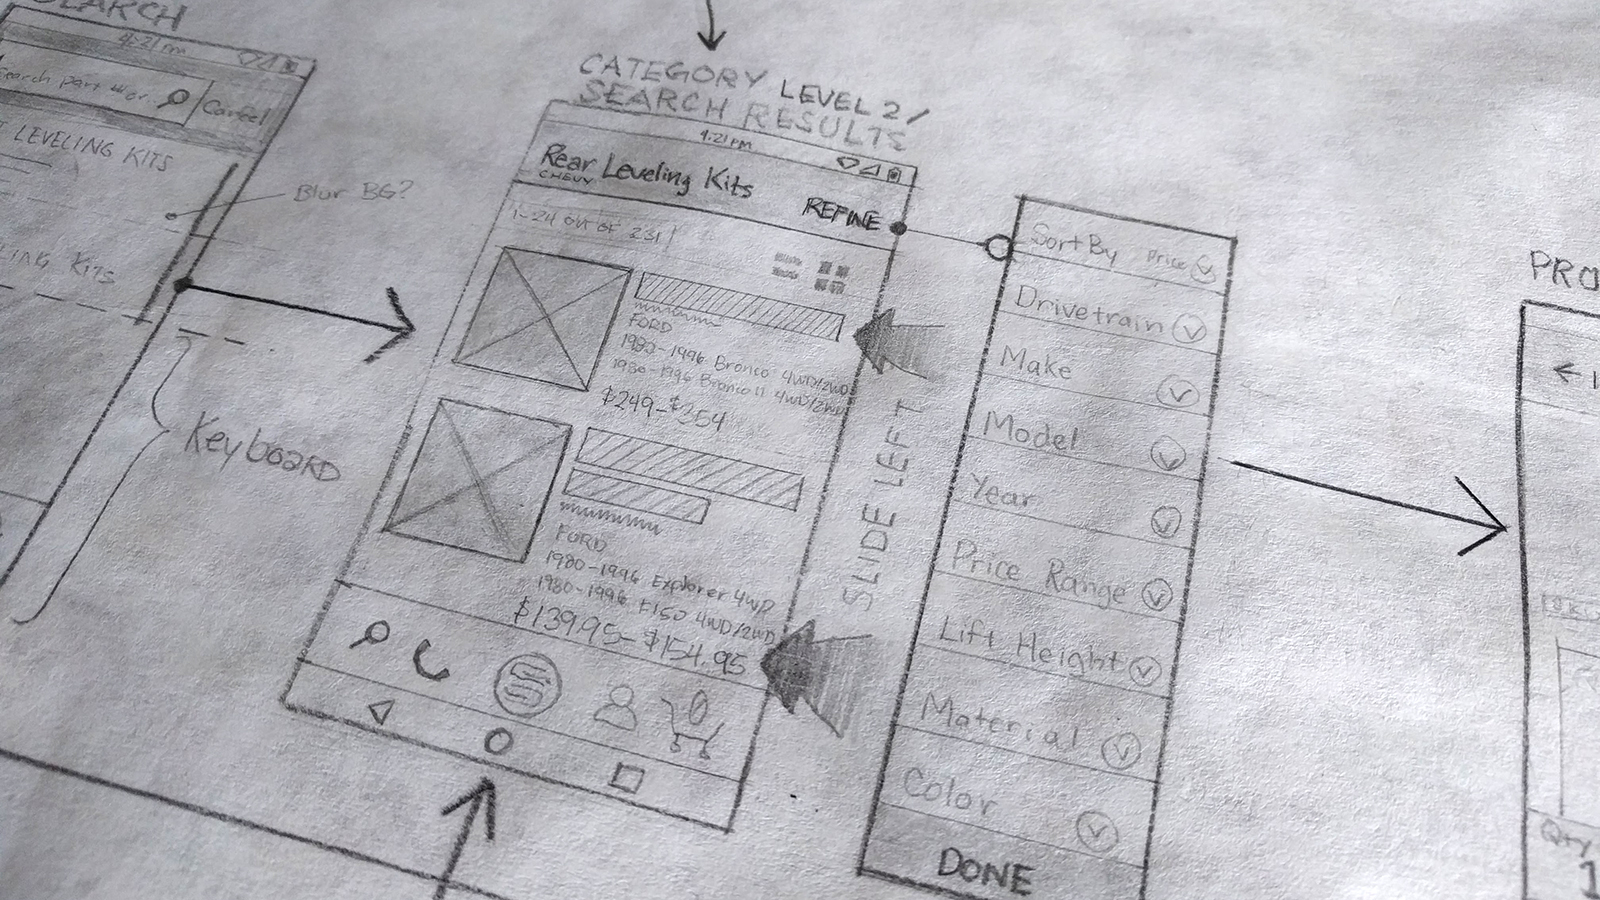 SEARCH
4:21 pm
Search part # or
Cancel
LEVELING KITS
Blur BG?
LING KITS
Keyboard
CATEGORY LEVEL 2 /
SEARCH RESULTS
4:21 pm
Rear Leveling Kits
CHEVY
REFINE
1-24 OUT OF 231
FORD
1980-1996 Bronco 4WD/2WD
1980-1996 Bronco II 4WD/2WD
$249-$254
FORD
1980-1996 Explorer 4WD
1980-1996 F150 4WD/2WD
$139.95-$154.95
0
SLIDE LEFT
Sort By Price
Drivetrain
Make
Model
Year
Price Range
Lift Height
Material
Color
DONE
PRO
Qty
1